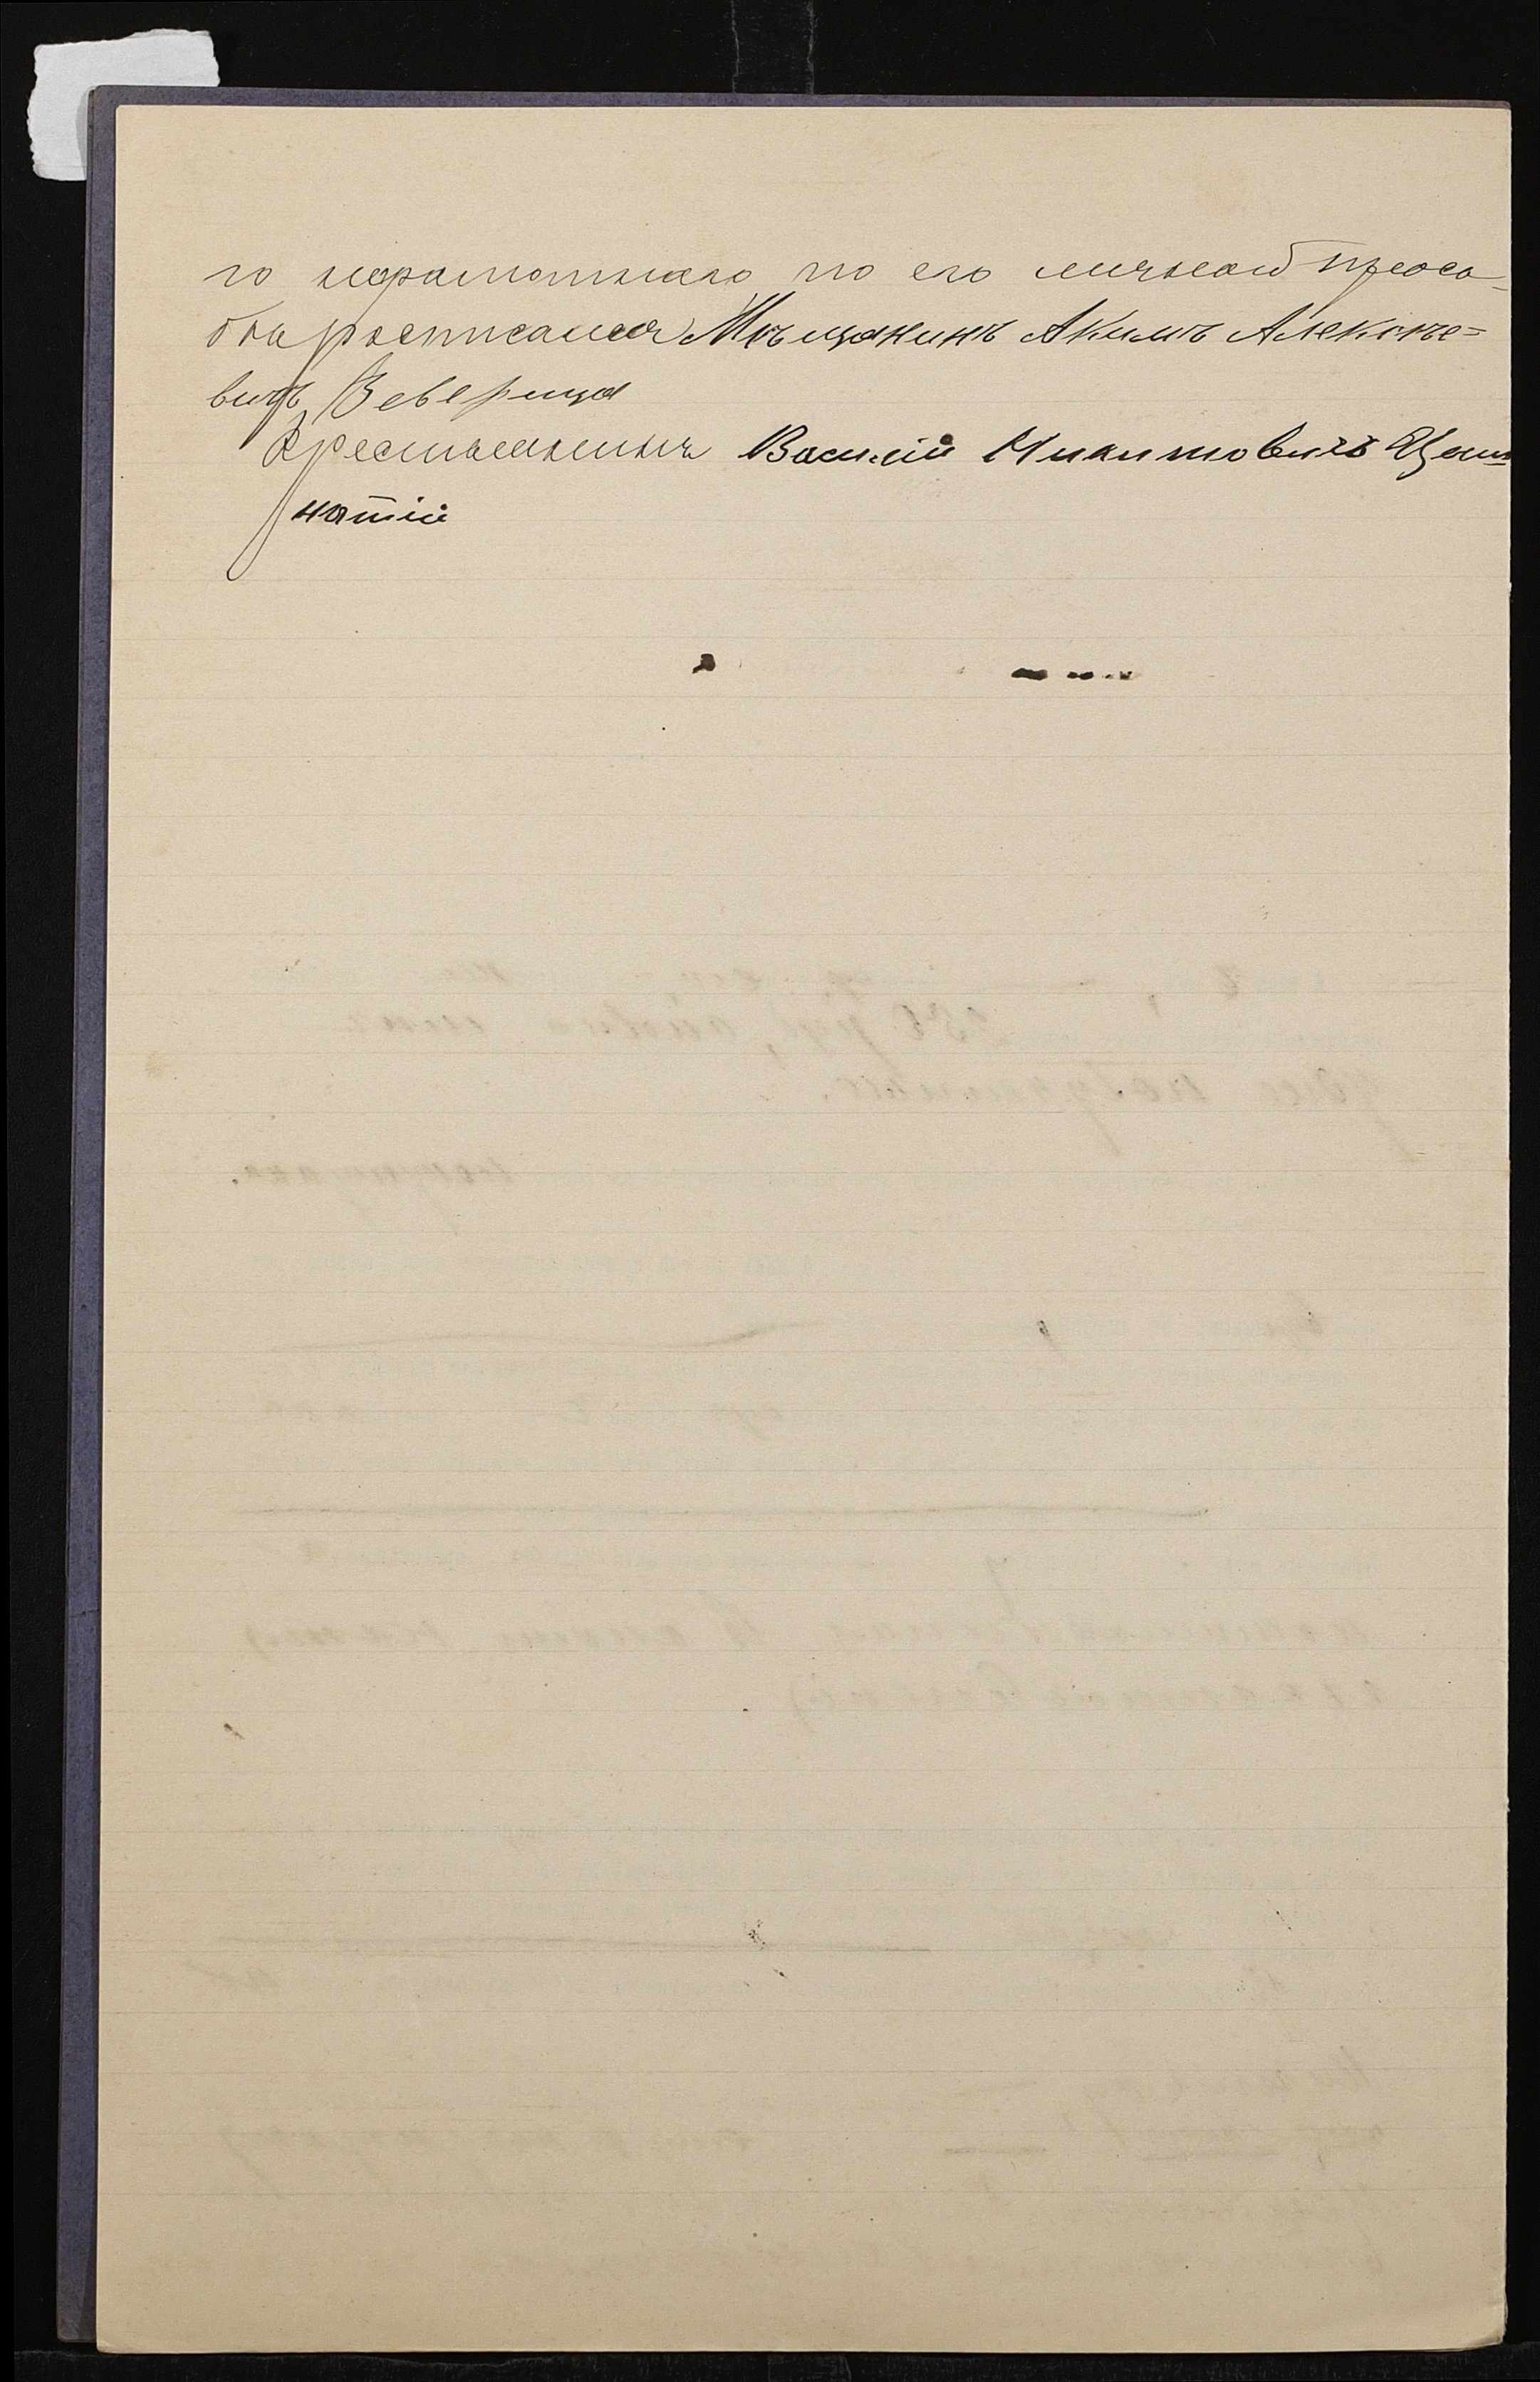 го неграмотнаго по его личной прось-
бы росписался Мѣщанинъ Акимъ Алексѣе=
вичъ Зеверица
Крестьянинъ Василій Никитовичъ
натій